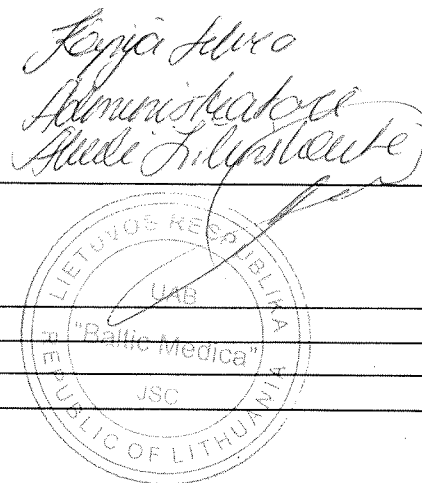 Kopija tikra
Administratorė
LIETUVOS RESPUBLIKA
UAB
"Baltic Medica"
JSC
REPUBLIC OF LITHUANIA